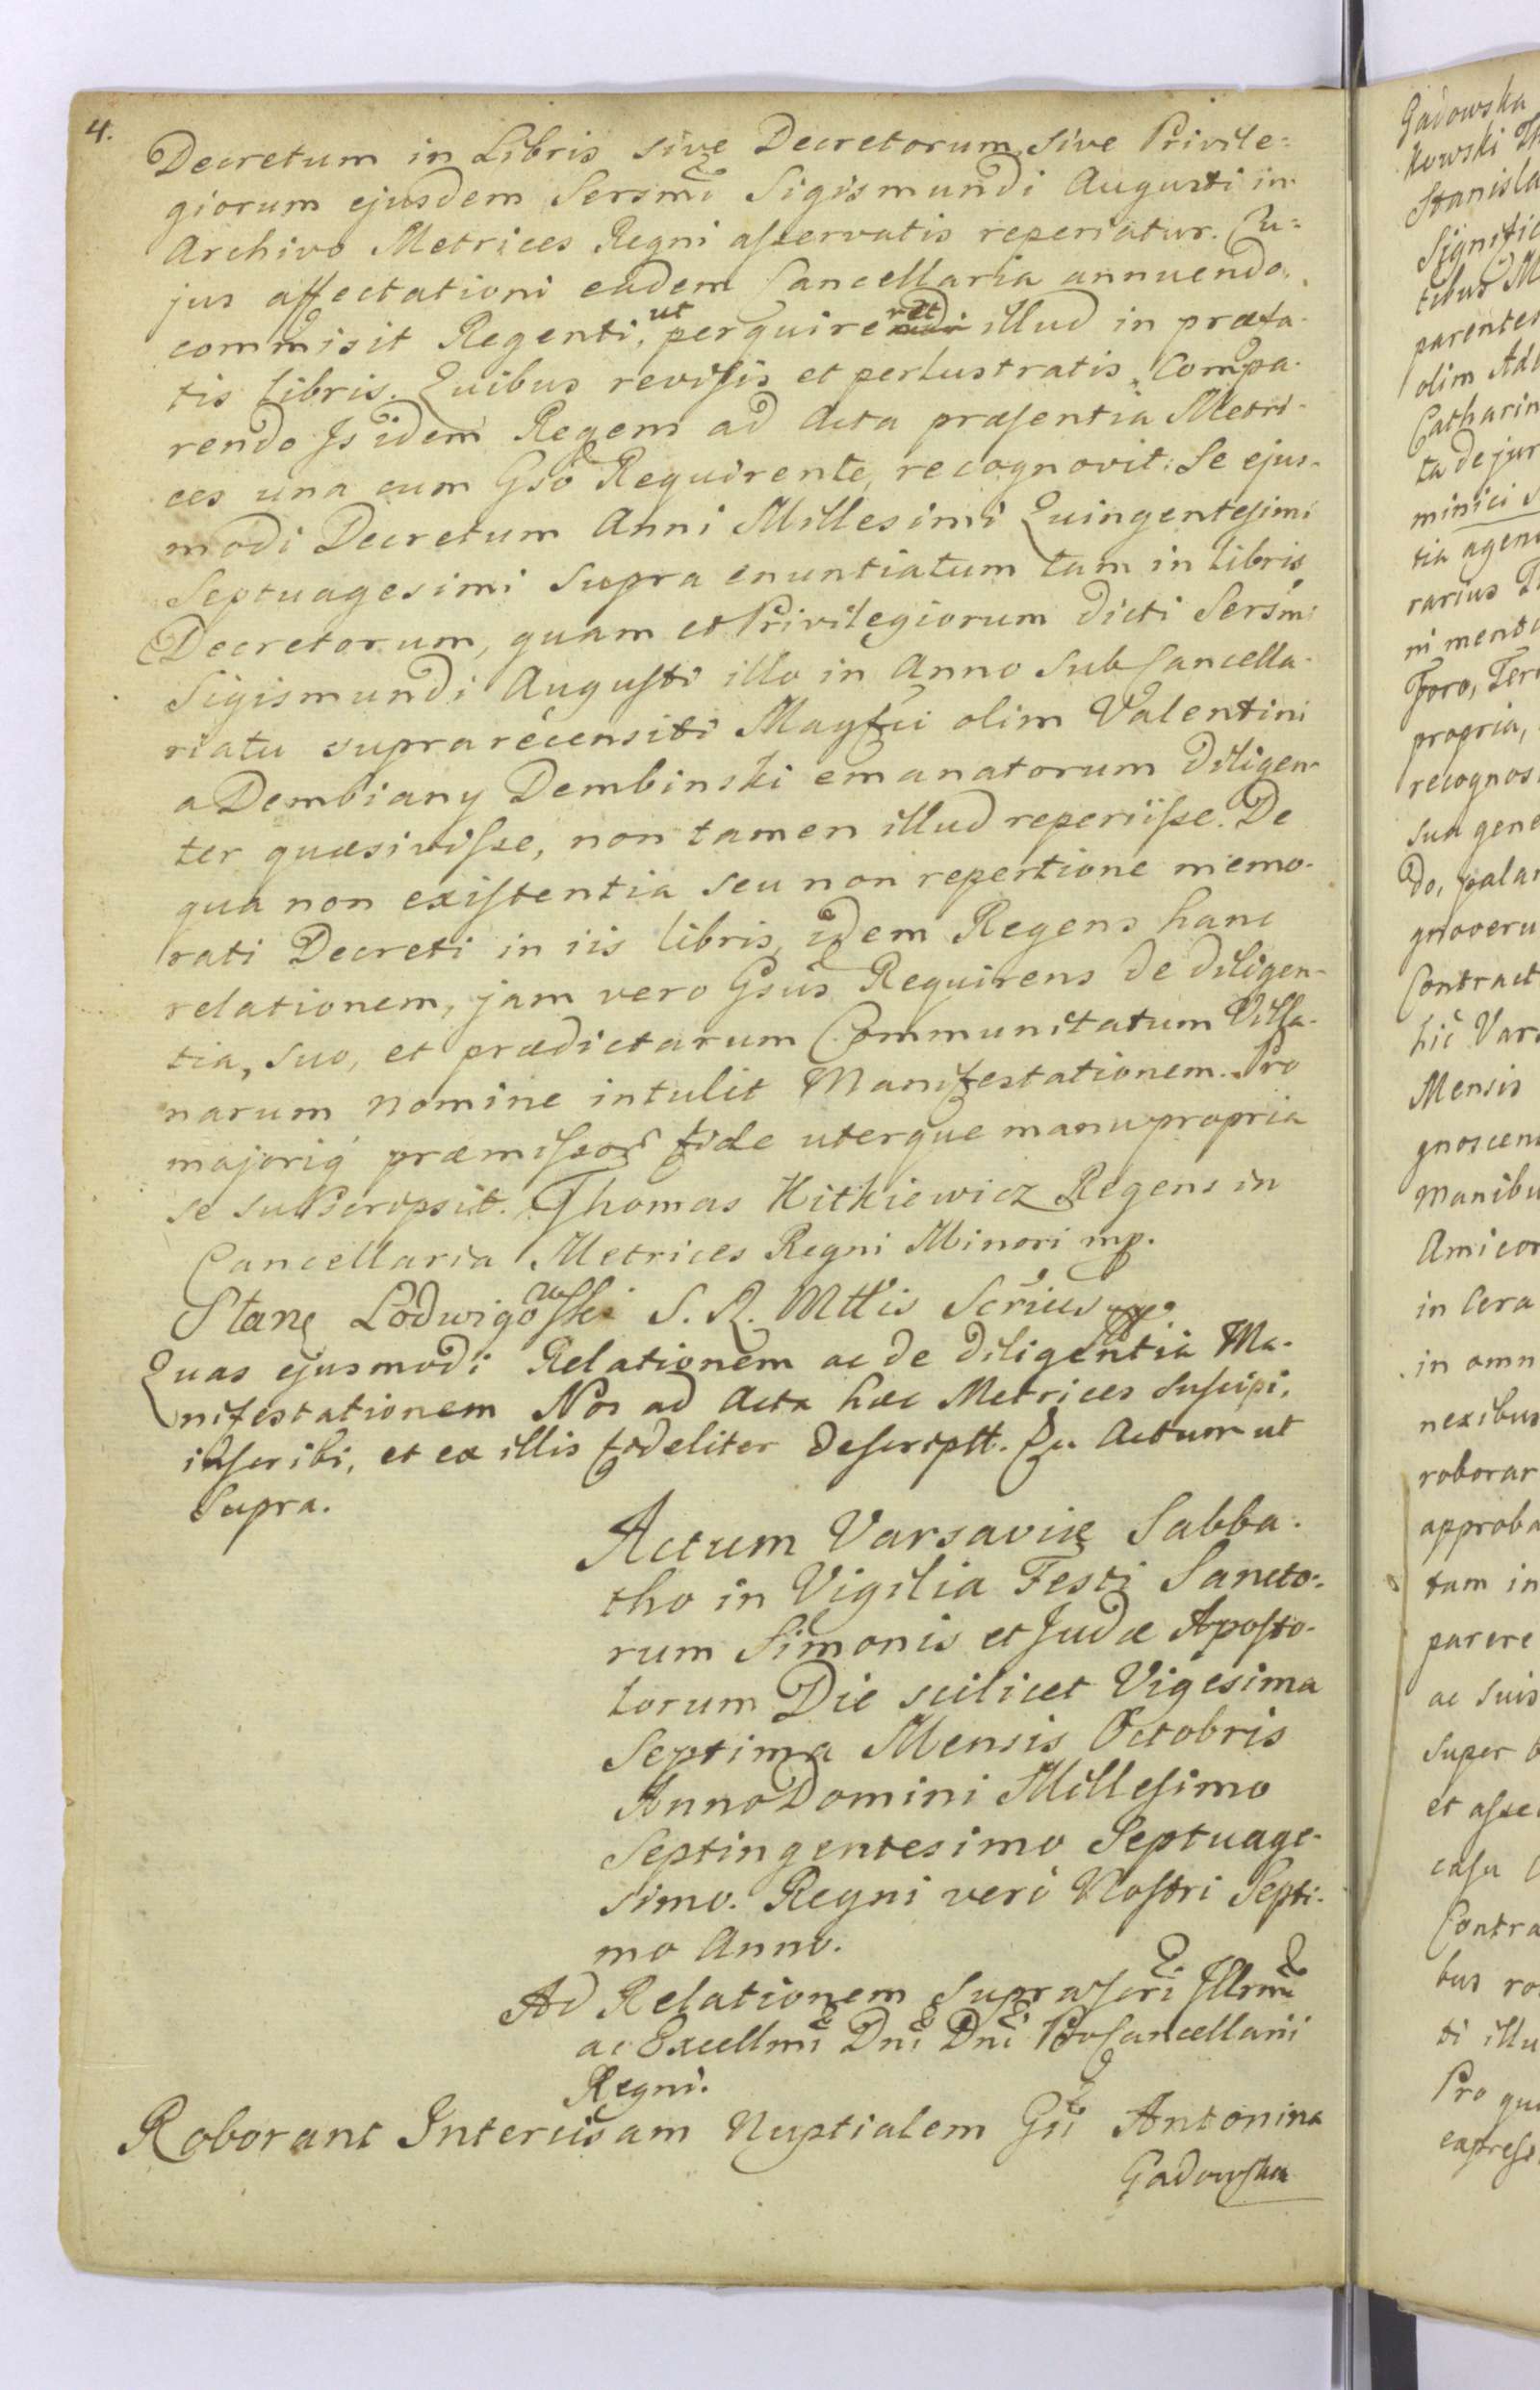 4.
Decretum in Libris sive Decretorum, sive Privile=
giorum ejusdem Sersmi Sigismundi Augusti in
Archivo Metrices Regni asservatis reperiatur. Cu=
jus affectationi eadem Cancellaria annuendo,
commisit Regenti, ut perquireret illud in præfa-
tis Libris. Quibus revisis et perlustratis, Compa-
rendo Is idem Regens ad Acta præsentia Metri-
ces una cum Gso Requirente, recognovit: Se ejus-
modi Decretum Anni Millesimi Quingentesimi
Septuagesimi supra enuntiatum tam in Libris
Decretorum, quam et Privilegiorum dicti Sersmi
Sigismundi Augusti illo in Anno sub Cancella-
riatu supra recensiti Magfci olim Valentini
a Dembiany Dembinski emanatorum diligen-
ter quæsivisse, non tamen illud reperiisse. De
qua non existentia seu non repertione memo-
rati Decreti in iis libris, idem Regens hanc
relationem, jam vero Gsus Requirens de diligen-
tia, suo, et prædictarum Communitatum Villa-
narum nomine intulit Manifestationem. Pro
majoriq præmissor fide uterque manu propria
se subscripsit. Thomas Kitkiewicz Regens in
Cancellaria Metrices Regni Minori mp.
Stans Lodwigowski S. R. Mttis Scrius mp.
Quas ejusmodi Relationem ac de diligentia Ma-
nifestationem Nos ad Acta hæc Metrices suscipi,
inscribi, et ex illis fideliter descriptt. Du Actum ut
Supra.
Actum Varsaviæ Sabba-
tho in Vigilia Festi Sancto-
rum Simonis et Judæ Aposto-
lorum Die scilicet Vigesima
Septima Mensis Octobris
Anno Domini Millesimo
Septingentesimo Septuage-
simo. Regni vero Nostri Septi-
mo Anno.
Ad Relationem suprascri Illrmi
ac Excellmi Dni Dni ProCancellarii
Regni.
Roborant Intercisam Nuptialem Gii Antonina
Gadowska
Gadowska
kowski
Stanisla
Signific
tibus M
parentes
olim Ada
Catharin
ta de jur
minici s
tia agen
rarius
ni mente
Foro, Ter
propria,
recognos
sua gene
do, palam
gnoveru
Contract
hic Vars
Mensis
gnoscen
manibu
Amicor
in Cera
in omn
nexibus
roborar
approba
tam in
parere
ac suis
super
et asse
casu
Contra
bus ro
ti illu
Pro qu
express